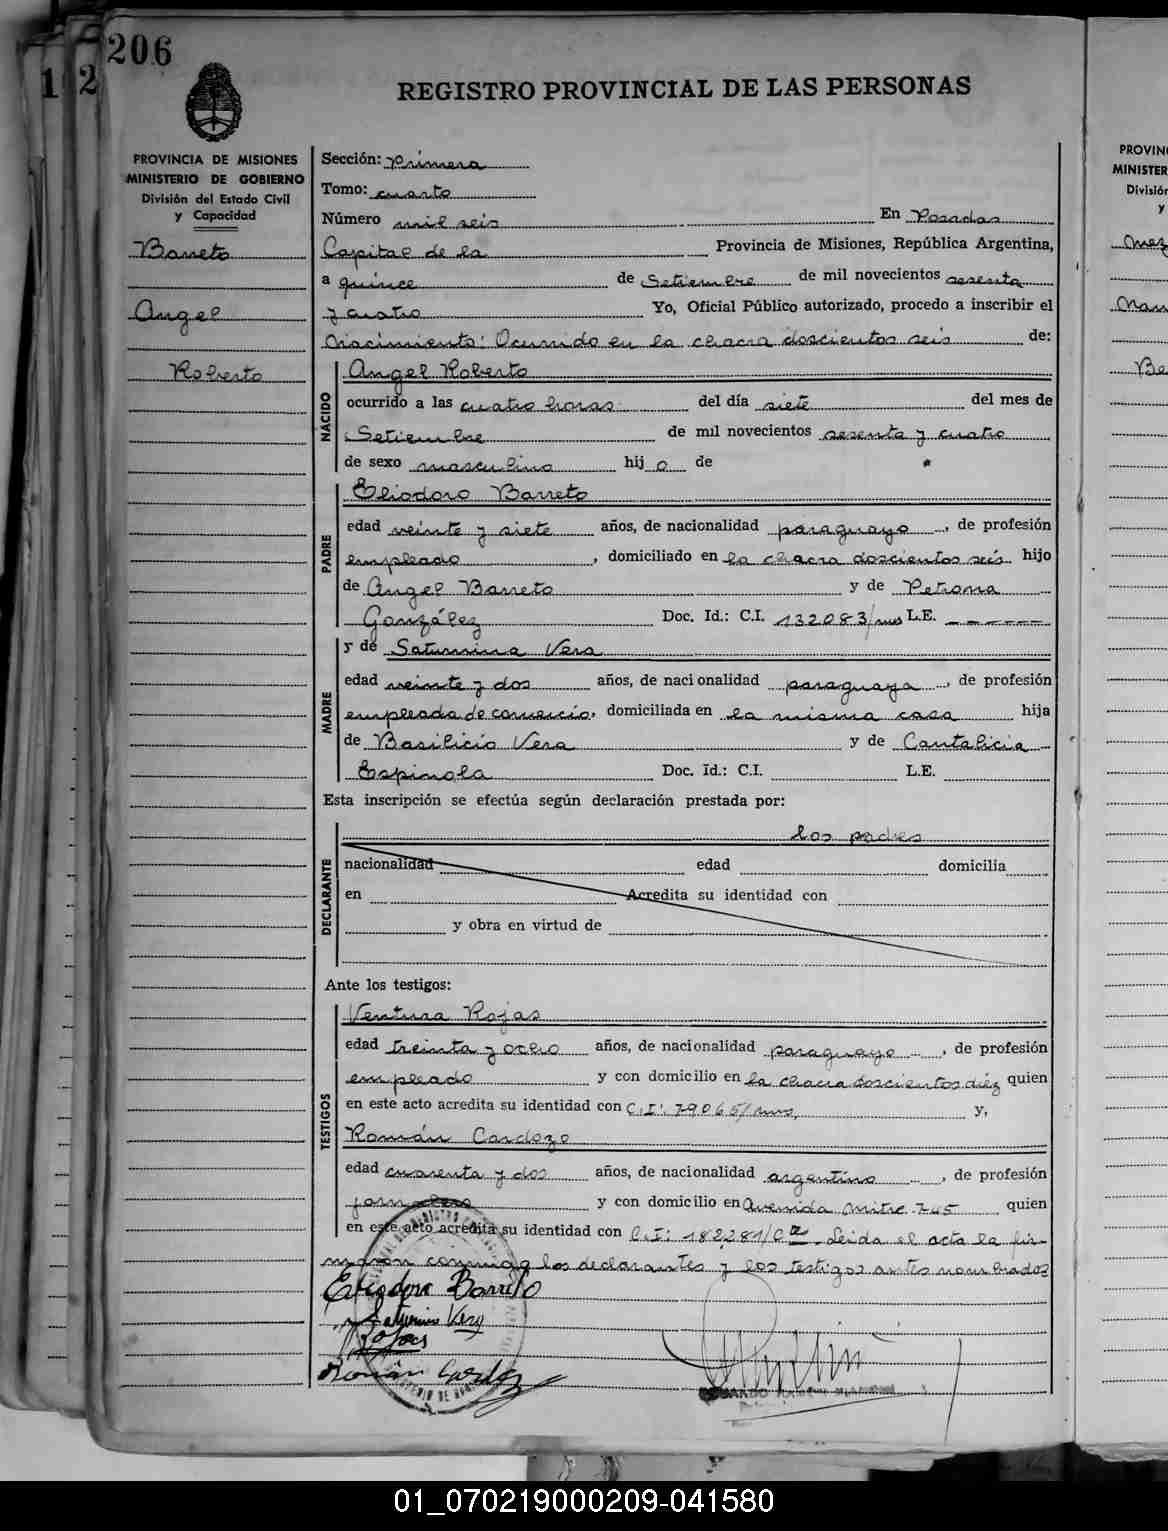 206
1
2
REGISTRO PROVINCIAL DE LAS PERSONAS
PROVINCIA DE MISIONES
MINISTERIO DE GOBIERNO
División del Estado Civil
y Capacidad
Barreto
Angel
Roberto
Sección: Primera
Tomo: cuarto
Número mil seis En Posadas
Capital de la Provincia de Misiones, República Argentina,
a quince de Setiembre de mil novecientos sesenta
y cuatro Yo, Oficial Público autorizado, procedo a inscribir el
Nacimiento: Ocurrido en la chacra doscientos seis de:
NACIDO
Angel Roberto
ocurrido a las cuatro horas del día siete del mes de
Setiembre de mil novecientos sesenta y cuatro
de sexo masculino hij o de
PADRE
Eliodoro Barreto
edad veinte y siete años, de nacionalidad paraguayo, de profesión
empleado, domiciliado en la chacra doscientos seis hijo
de Angel Barreto y de Petrona
González Doc. Id.: C.I. 132083/mns L.E. ------
MADRE
y de Saturnina Vera
edad veinte y dos años, de nacionalidad paraguaya, de profesión
empleada de comercio, domiciliada en la misma casa hija
de Basilicio Vera y de Cantalicia
Espinola Doc. Id.: C.I. L.E.
Esta inscripción se efectúa según declaración prestada por:
DECLARANTE
los padres
nacionalidad edad domicilia
en Acredita su identidad con
y obra en virtud de
Ante los testigos:
TESTIGOS
Ventura Rojas
edad treinta y ocho años, de nacionalidad paraguayo, de profesión
empleado y con domicilio en la chacra doscientos diéz quien
en este acto acredita su identidad con C.I: 79065/mns, y,
Román Cardozo
edad cuarenta y dos años, de nacionalidad argentino, de profesión
jornalero y con domicilio en Avenida Mitre 745 quien
en este acto acredita su identidad con C.I: 182281/ Leida el acta la fir-
maron conmigo los declarantes y los testigos antes nombrados
Eliodoro Barreto
Saturnina Vera
Rojas
Román Cardozo
PROVIN
MINISTER
División
y
01_070219000209-041580